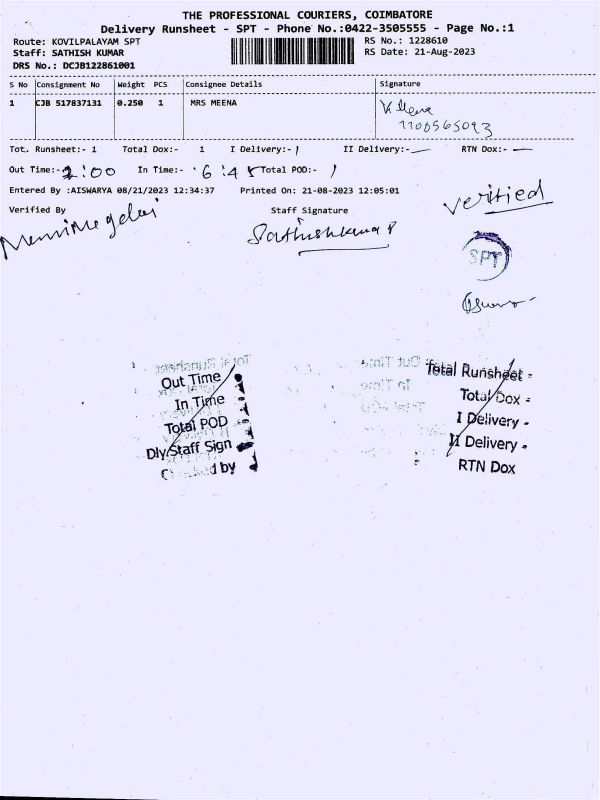 THE PROFESSIONAL COURIERS, COIMBATORE
Delivery Runsheet - SPT - Phone No.:0422-3505555 - Page No.:1
Route: KOVILPALAYAM SPT RS No.: 1228610
Staff: SATHISH KUMAR RS Date: 21-Aug-2023
DRS No.: DCJB122861001
S No Consignment No Weight PCS Consignee Details Signature
1 CJB 517837131 0.250 1 MRS MEENA V. Meena
Tot. Runsheet:- 1 Total Dox:- 1 I Delivery:- 1 II Delivery:- — RTN Dox:- —
Out Time:- 2:00 In Time:- 6:45 Total POD:- 1
Entered By :AISWARYA 08/21/2023 12:34:37 Printed On: 21-08-2023 12:05:01
Verified
Verified By Staff Signature
Sathishkumar P
SPT
Out Time
In Time
Total POD
Dly/Staff Sign
d by
Total Runsheet -
Total Dox -
I Delivery -
II Delivery -
RTN Dox